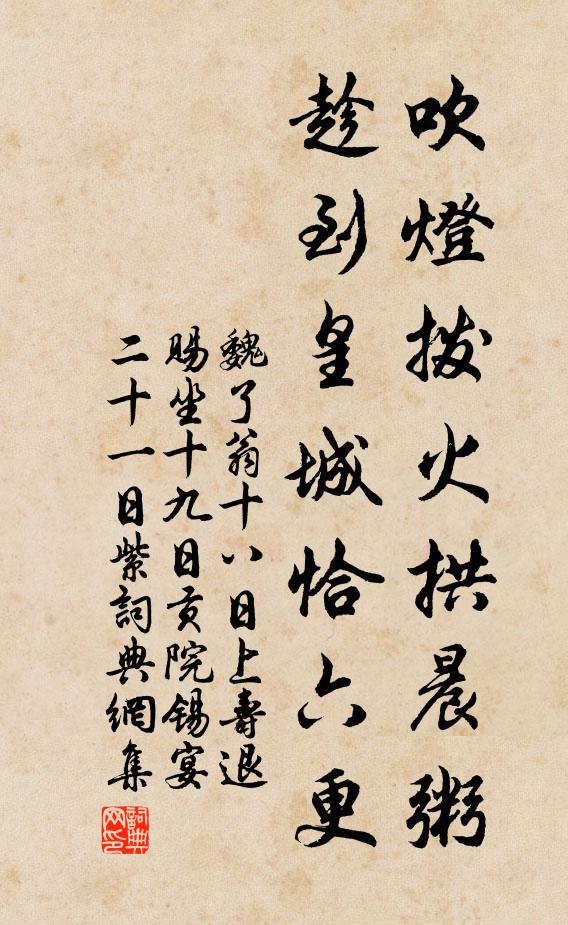 吹燈拨火拱晨粥
趁到皇城恰六更
魏了翁十八日上壽退
賜坐十九日贡院锡宴
二十一日紫詞典網集
詞典网印